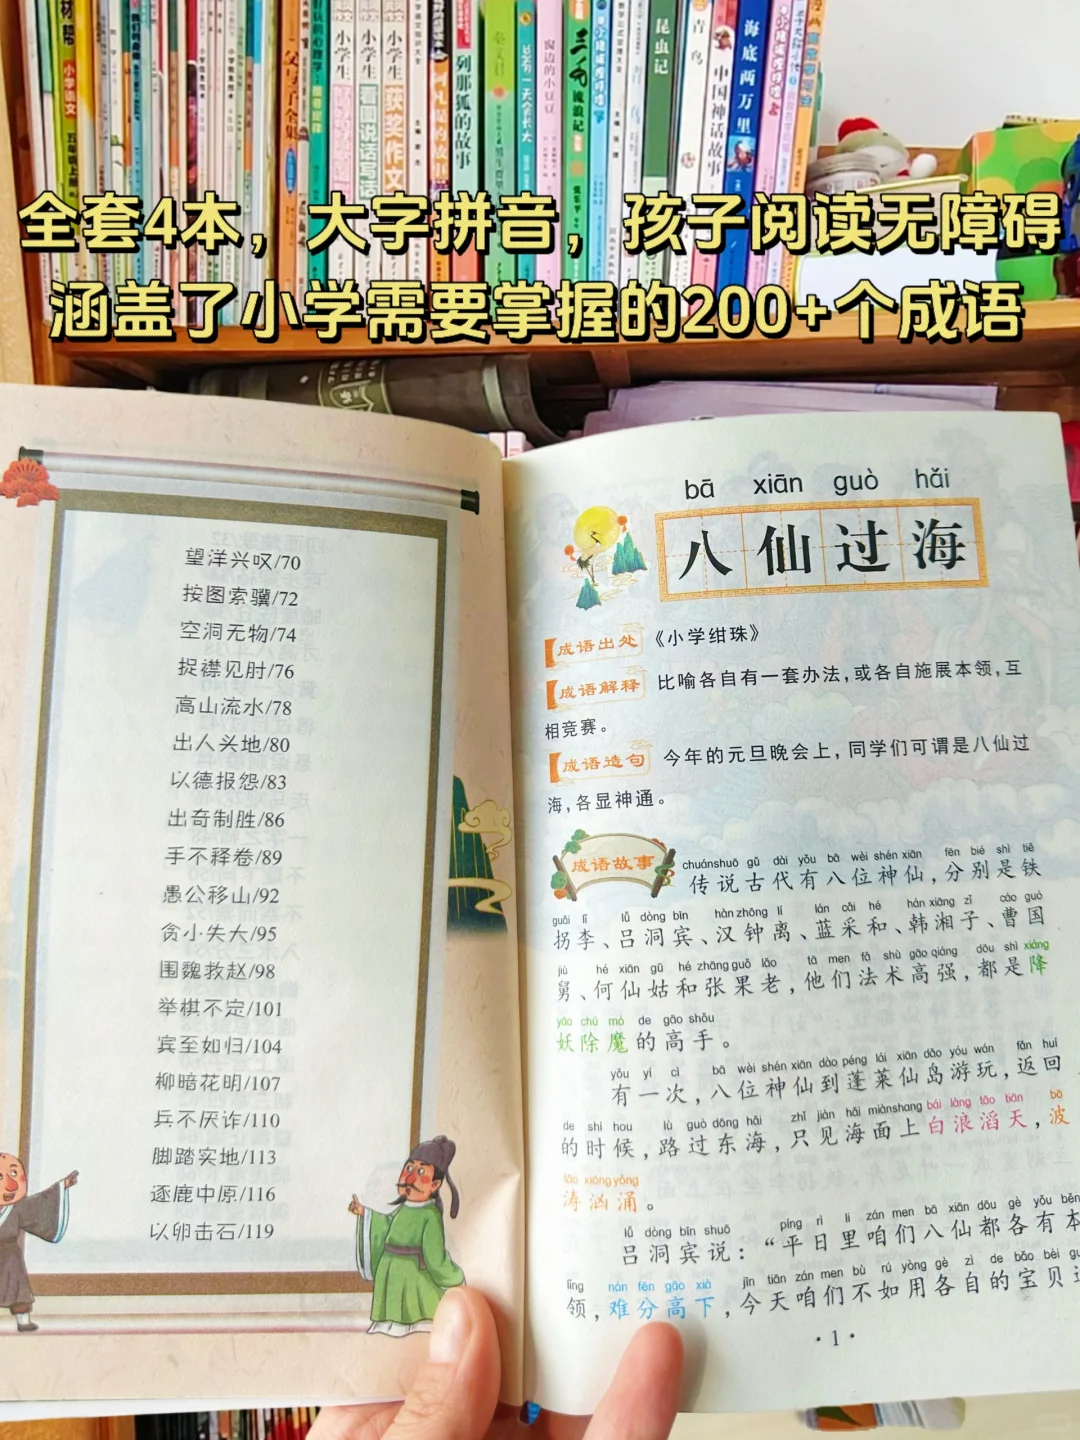 小学语文
父与子全集
小学生
小学生
看图说话写话
小学生
获奖作文
列那狐的故事
窗边的小豆豆
三毛流浪记
昆虫记
青鸟
中国神话故事
海底两万里
全套4本，大字拼音，孩子阅读无障碍
涵盖了小学需要掌握的200+个成语
望洋兴叹/70
按图索骥/72
空洞无物/74
捉襟见肘/76
高山流水/78
出人头地/80
以德报怨/83
出奇制胜/86
手不释卷/89
愚公移山/92
贪小失大/95
围魏救赵/98
举棋不定/101
宾至如归/104
柳暗花明/107
兵不厌诈/110
脚踏实地/113
逐鹿中原/116
以卵击石/119
bā xiān guò hǎi
八仙过海
成语出处 《小学绀珠》
成语解释 比喻各自有一套办法，或各自施展本领，互
相竞赛。
成语造句 今年的元旦晚会上，同学们可谓是八仙过
海，各显神通。
成语故事
chuánshuō gǔ dài yǒu bā wèi shén xiān fēn bié shì tiě
传说古代有八位神仙，分别是铁
guǎi lǐ lǚ dòng bīn hàn zhōng lí lán cǎi hé hán xiāng zǐ cáo guó
拐李、吕洞宾、汉钟离、蓝采和、韩湘子、曹国
jiù hé xiān gū hé zhāng guǒ lǎo tā men fǎ shù gāo qiáng dōu shì xiáng
舅、何仙姑和张果老，他们法术高强，都是降
yāo chú mó de gāo shǒu
妖除魔的高手。
yǒu yí cì bā wèi shén xiān dào péng lái xiān dǎo yóu wán fǎn huí
有一次，八位神仙到蓬莱仙岛游玩，返回
de shí hou lù guò dōng hǎi zhǐ jiàn hǎi miànshang bái làng tāo tiān bō
的时候，路过东海，只见海面上白浪滔天，波
tāo xiōng yǒng
涛汹涌。
lǚ dòng bīn shuō píng rì li zán men bā xiān dōu gè yǒu běn
吕洞宾说：“平日里咱们八仙都各有本
lǐng nán fēn gāo xià jīn tiān zán men bù rú yòng gè zì de bǎo bèi
领，难分高下，今天咱们不如用各自的宝贝
·1·